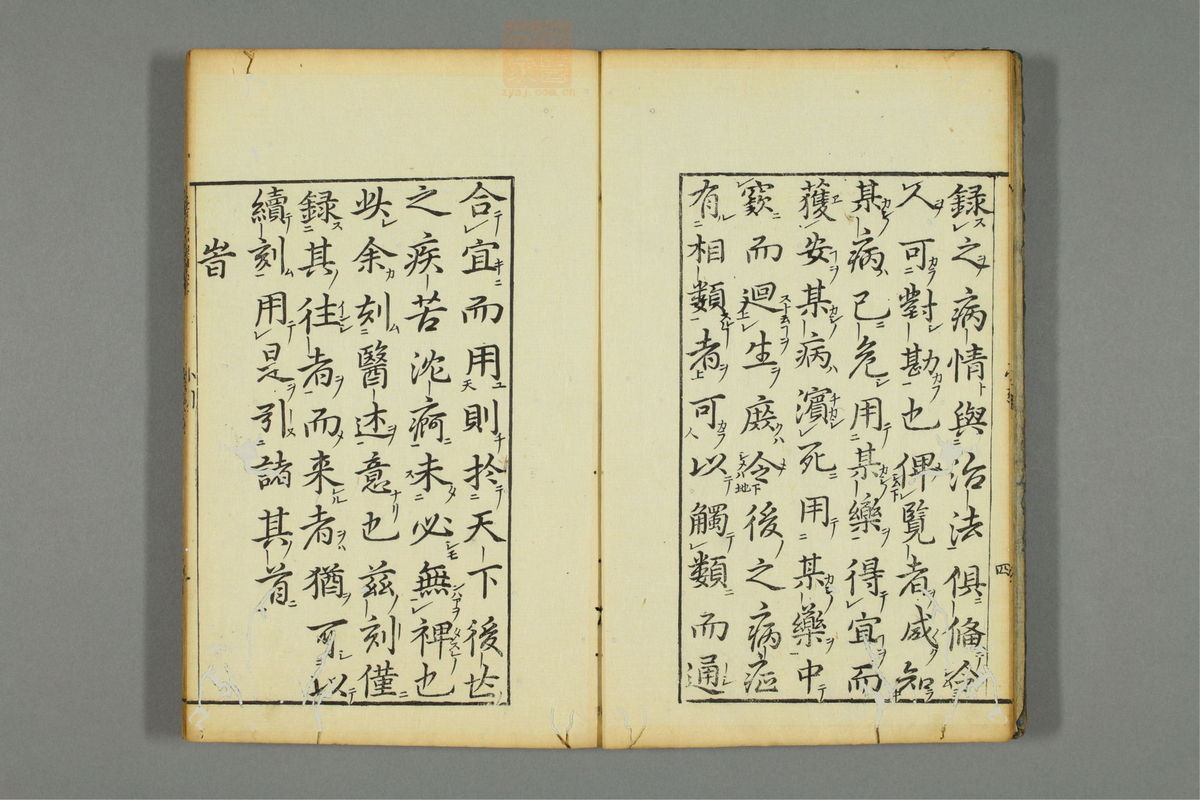 録之病情與治法俱備令
人可對勘也俾覽者咸知
某病已危用某藥得宜而
獲安某病瀕死用某藥中
竅而迴生庻令後之病症
有相類者可以觸類而通
四
合宜而用則扵天下後世
之疾苦沈痾未必無裨也
此余刻醫述意也茲刻僅
録其徃者而来者猶可以
續刻用是引諸其首
旹
zysj.com.cn